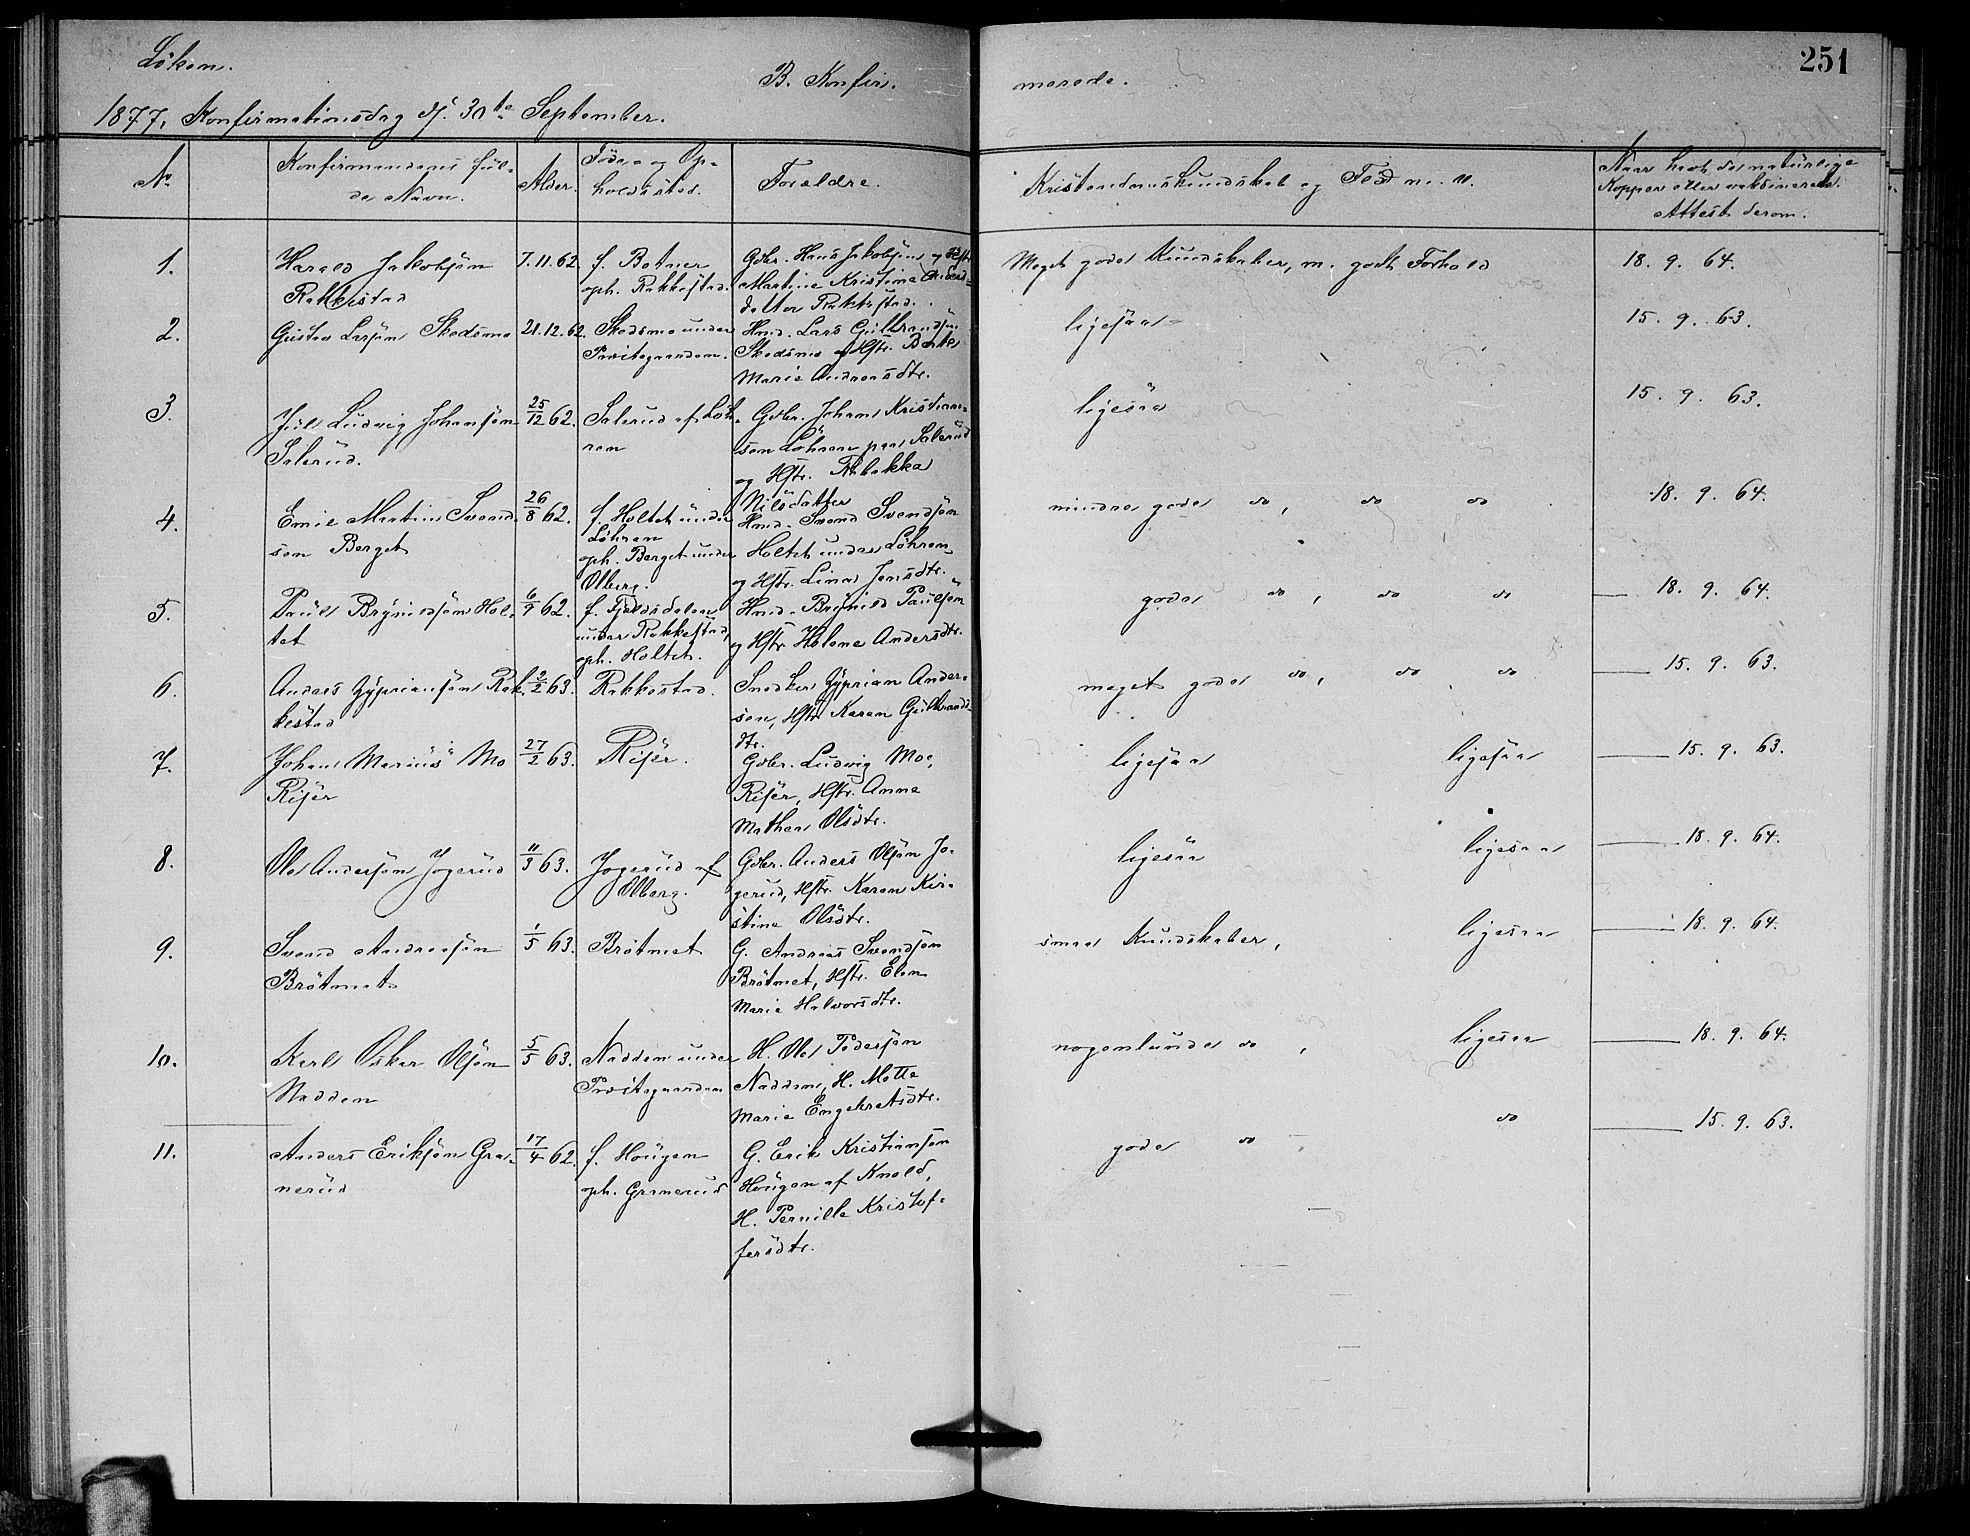 251
Løken.
B. Konfir-
merede.
1877, Konfirmationsdag d. 30te September.
No
Konfirmandens ful-
de Navn.
Alder.
Føde- og Op-
holdssted.
Forældre.
Kristendomskundskab og Flid m. v.
Naar havt de naturlige
Kopper eller vaksinerede.
Attest derom.
1.
Harald Jakobsøn
Rakkestad
7.11.62.
f. Botner
oph. Rakkestad.
Gbr. Hans Jakobsøn og Hstr.
Martine Kristine Anders-
datter Rakkestad.
Meget gode Kundskaber, m. godt Forhold
18. 9. 64.
2.
Gustav Larsøn Skedsmo
21.12.62.
Skedsmo under
Præstegaarden.
Hmd. Lars Gulbrandsøn
Skedsmo og Hstr. Berte
Marie Andreasdtr.
ligesaa
15. 9. 63.
3.
Juls Ludvig Johansøn
Salerud.
25/12 62.
Salerud af Løh-
ren
Gbr. Johan Kristian-
søn Løhren paa Salerud
og Hstr. Rebekka
Nilsdatter
ligesaa
15. 9. 63.
4.
Emil Martin Svend-
sen Berget
26/8 62.
f. Holtet under
Løhren
oph. Berget under
Olberg.
Hmd. Svend Svendsøn
Holtet under Løhren
og Hstr. Lina Jensdtr.
mindre gode do, do do
18. 9. 64.
5.
Paul Brynildsøn Hol-
tet
6/9 62.
f. Fjeldsdalen
under Rakkestad,
oph. Holtet.
Hmd. Brynild Paulsøn
og Hstr. Helene Andersdtr.
gode do, do do
18. 9. 64.
6.
Anders Zypriansøn Rak-
kestad
2/2 63.
Rakkestad.
Snedker Zyprian Ander-
sen, Hstr. Karen Gulbrands-
dtr.
meget gode do, do do
15. 9. 63.
7.
Johan Marius Mo
Risør
27/2 63.
Risør.
Gbr. Ludvig Moe,
Risør, Hstr. Anne
Mathea Olsdtr.
ligesaa ligesaa
15. 9. 63.
8.
Ole Andersøn Jogerud
11/3 63.
Jogerud af
Olberg.
Gbr. Anders Olsøn Jo-
gerud, Hstr. Karen Kir-
stine Olsdtr.
ligesaa ligesaa
18. 9. 64.
9.
Svend Andreasøn
Bråtmet
1/5 63.
Bråtmet
G. Andreas Svendsøn
Bråtmet, Hstr. Elen
Marie Halvorsdtr.
smaa Kundskaber, ligesaa
18. 9. 64.
10.
Karl Oskar Olsøn
Nadden
5/5 63.
Nadden under
Præstegaarden
H. Ole Pedersøn
Nadden, H. Mette
Marie Engebretsdtr.
nogenlunde do, ligesaa
18. 9. 64.
11.
Anders Eriksøn Gra-
nerud
17/4 62.
f. Hougen
oph. Granerud
G. Erik Kristiansøn
Hougen af Knold,
H. Pernille Kristof-
fersdtr.
gode do do
15. 9. 63.